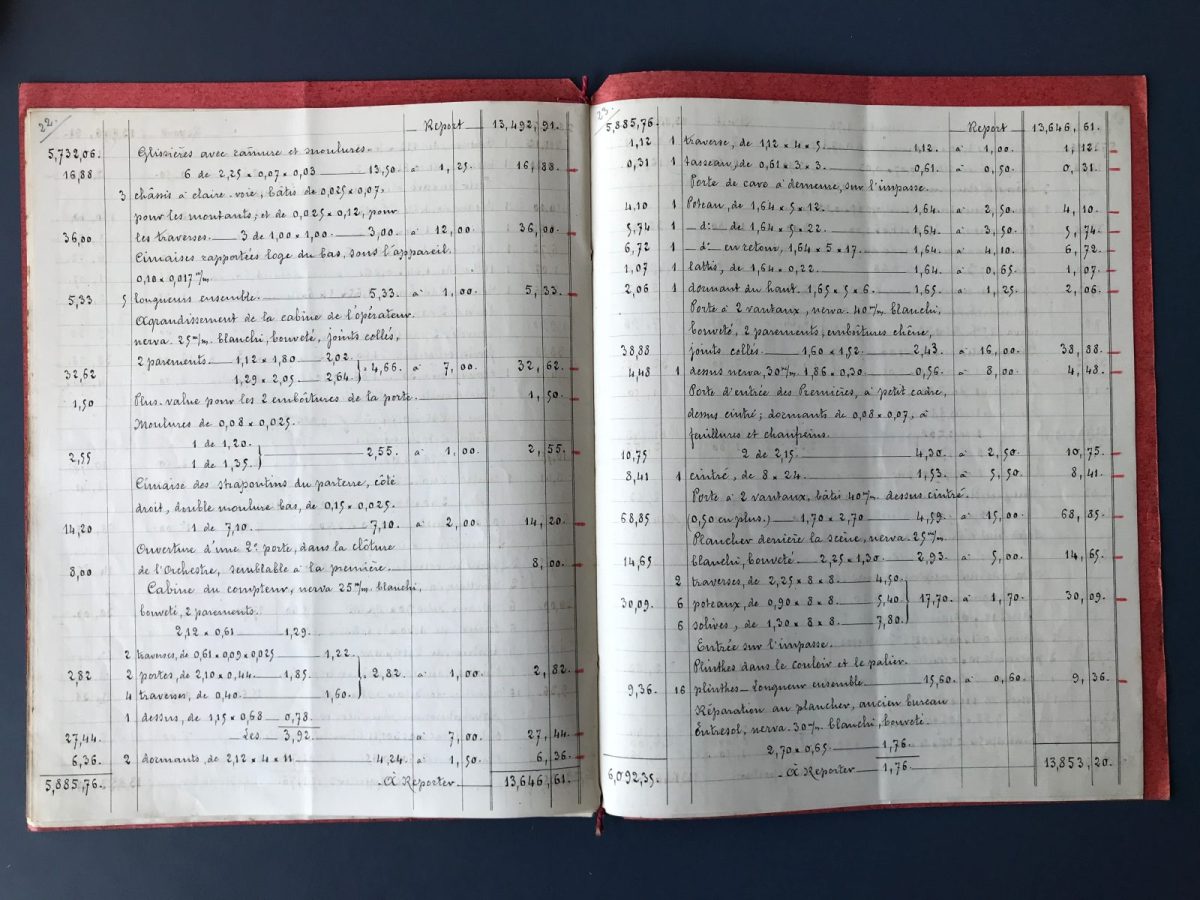 22.
Report 13,492,91.
5,732,06. Glissières avec rainure et moulures.
16,88 6 de 2,25 x 0,07 x 0,03 13,50. à 1,25. 16,88.
3 châssis à claire-voie, bâtis de 0,025 x 0,07,
pour les montants; et de 0,025 x 0,12, pour
36,00 les traverses. 3 de 1,00 x 1,00. 3,00. à 12,00. 36,00.
Cimaises rapportées loge du bas, sous l'appareil.
0,10 x 0,017 m/m.
5,33 5 longueurs ensemble. 5,33. à 1,00. 5,33.
Agrandissement de la cabine de l'opérateur.
nerva. 25 m/m. blanchi, bouveté, joints collés,
2 parements. 1,12 x 1,80. 2,02.
32,62 4,66. à 7,00. 32,62.
1,29 x 2,05. 2,64.
1,50 Plus-value pour les 2 emboîtures de la porte. 1,50.
Moulures de 0,08 x 0,025.
1 de 1,20.
2,55 2,55. à 1,00. 2,55.
1 de 1,35.
Cimaise des strapontins du parterre, côté
droit, double moulure bas, de 0,15 x 0,025.
14,20 1 de 7,10. 7,10. à 2,00. 14,20.
Ouverture d'une 2e porte, dans la clôture
8,00 de l'Orchestre, semblable à la première. 8,00.
Cabine du compteur, nerva 25 m/m. blanchi,
bouveté, 2 parements.
2,12 x 0,61 1,29.
2 traverses, de 0,61 x 0,09 x 0,025 1,22.
2,82 2 portes, de 2,10 x 0,44. 1,85. 2,82. à 1,00. 2,82.
4 traverses, de 0,40. 1,60.
1 dessus, de 1,15 x 0,68 0,78.
27,44. Les 3,92. à 7,00. 27,44.
6,36. 2 dormants, de 2,12 x 4 x 11 4,24. à 1,50. 6,36.
5,885,76. À Reporter 13,646,61.
23.
5,885,76. Report 13,646,61.
1,12 1 traverse, de 1,12 x 4 x 5. 1,12. à 1,00. 1,12.
0,31 1 tasseau, de 0,61 x 3 x 3. 0,61. à 0,50. 0,31.
Porte de cave à demeure, sur l'impasse.
4,10 1 Poteau, de 1,64 x 5 x 12. 1,64. à 2,50. 4,10.
5,74 1 do de 1,64 x 5 x 22. 1,64. à 3,50. 5,74.
6,72 1 do en retour, 1,64 x 5 x 17. 1,64. à 4,10. 6,72.
1,07 1 lattis, de 1,64 x 0,22. 1,64. à 0,65. 1,07.
2,06 1 dormant du haut. 1,65 x 5 x 6. 1,65. à 1,25. 2,06.
Porte à 2 vantaux, nerva. 40 m/m. blanchi,
bouveté, 2 parements, emboîtures chêne,
38,88 joints collés. 1,60 x 1,52. 2,43. à 16,00. 38,88.
4,48 1 dessus nerva, 30 m/m. 1,86 x 0,30. 0,56. à 8,00. 4,48.
Porte d'entrée des Premières, à petit cadre,
dessus cintré; dormants de 0,08 x 0,07, à
feuillures et chanfreins.
10,75 2 de 2,15. 4,30. à 2,50. 10,75.
8,41 1 cintré, de 8 x 24. 1,53. à 5,50. 8,41.
Porte à 2 vantaux, bâtis 40 m/m. dessus cintré.
68,85 (0,50 en plus.) 1,70 x 2,70 4,59. à 15,00. 68,85.
Plancher derrière la scène, nerva. 25 m/m.
14,65 blanchi, bouveté 2,25 x 1,30. 2,93. à 5,00. 14,65.
2 traverses, de 2,25 x 8 x 8. 4,50.
30,09. 6 poteaux, de 0,90 x 8 x 8. 5,40. 17,70. à 1,70. 30,09.
6 solives, de 1,30 x 8 x 8. 7,80.
Entrée sur l'impasse.
Plinthes dans le couloir et le palier.
9,36. 16 plinthes_Longueur ensemble 15,60. à 0,60. 9,36.
Réparation au plancher, ancien bureau
Entresol, nerva. 30 m/m. blanchi, bouveté.
2,70 x 0,65. 1,76.
6,092,35. À Reporter 1,76. 13,853,20.